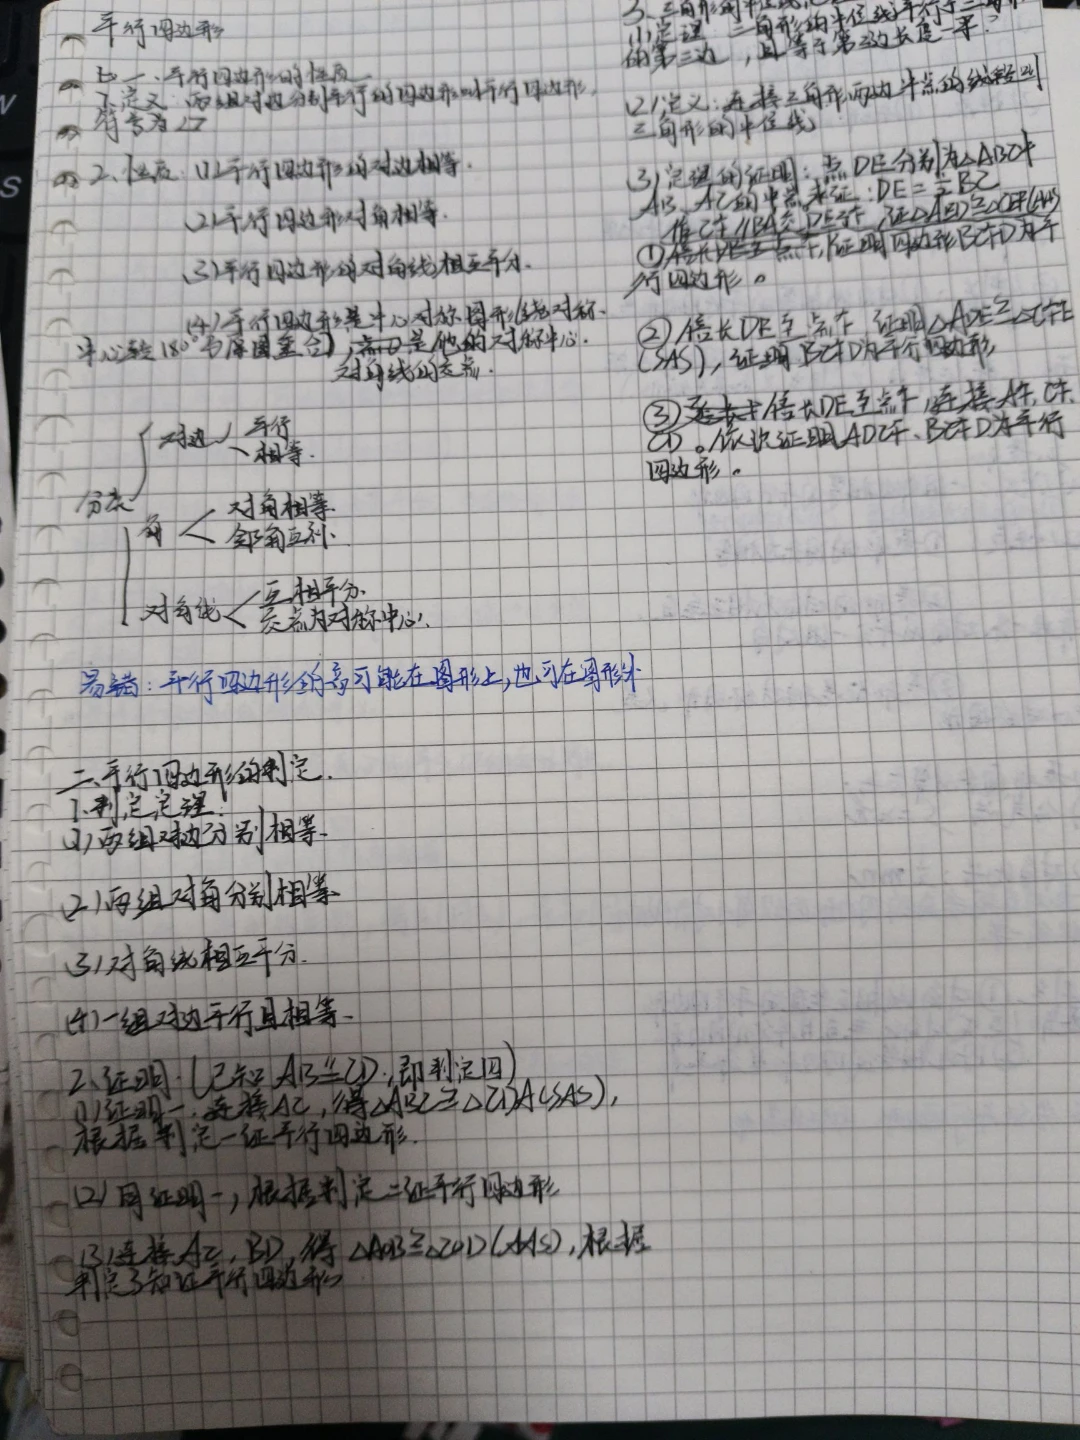 平行四边形
一、平行四边形的性质
1.定义:两组对边分别平行的四边形叫平行四边形,
符号为▱
2.性质:(1)平行四边形的对边相等.
(2)平行四边形对角相等.
(3)平行四边形的对角线相互平分.
(4)平行四边形是中心对称图形(绕对称
中心转180°与原图重合),点O是他的对称中心.
对角线的交点.
分类
对边
平行
相等.
角
对角相等.
邻角互补.
对角线
互相平分.
交点为对称中心.
易错:平行四边形的高可能在图形上,也可在图形外
二、平行四边形的判定.
1.判定定理:
(1)两组对边分别相等.
(2)两组对角分别相等.
(3)对角线相互平分.
(4)一组对边平行且相等.
2.证明.(已知AB≌CD,即判定四)
(1)证明一.连接AC,得△ABC≌△CDA(SAS),
根据判定一证平行四边形.
(2)同证明一,根据判定二证平行四边形
(3)连接AC,BD,得△AOB≌△COD(AAS),根据
判定3知证平行四边形
3.三角形的中位线
(1)定理:三角形的中位线平行于三角形
的第三边,且等于第三边长度一半.
(2)定义:连接三角形两边中点的线段叫
三角形的中位线
(3)定理的证明:点DE分别为△ABC中
AB、AC的中点,求证:DE=½BC
作CF//BA交DE于F,证△AED≌△CEF(AAS)
①倍长DE至点F,证明四边形BCFD为平
行四边形。
②倍长DE至点F,证明△ADE≌△CFE
(SAS),证明BCFD为平行四边形
③延长F倍长DE至点F,连接AF,CF,
CD。依次证明ADCF、BCFD为平行
四边形。